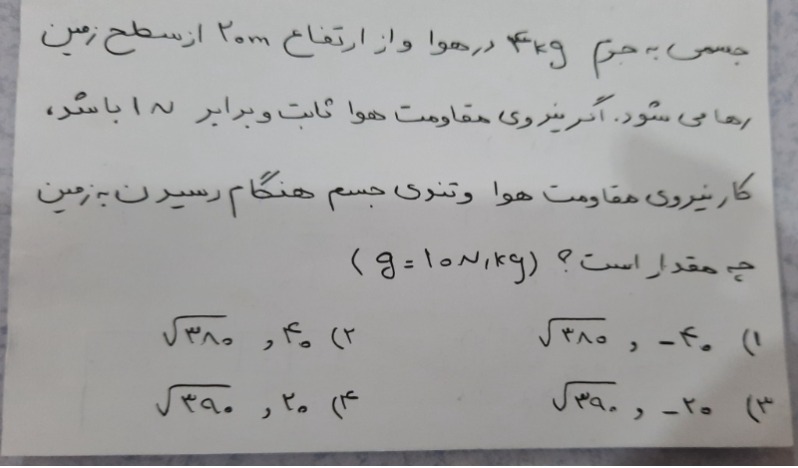 جسمی به جرم ۴kg در هوا و از ارتفاع ۲۰m از سطح زمین
رها می شود. اگر نیروی مقاومت هوا ثابت و برابر ۱N باشد،
کار نیروی مقاومت هوا و تندی جسم هنگام رسیدن به زمین
چه مقدار است؟ (g=۱۰N/kg)
۱) -۴۰ , √۳۸۰ ۲) ۴۰ , √۳۸۰
۳) -۲۰ , √۳۹۰ ۴) ۲۰ , √۳۹۰